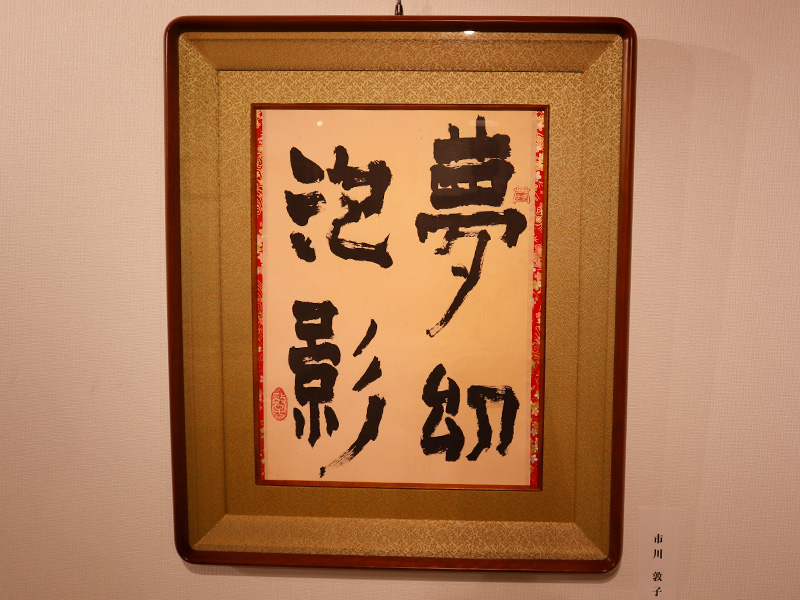 夢幻
泡影
市川 敦子